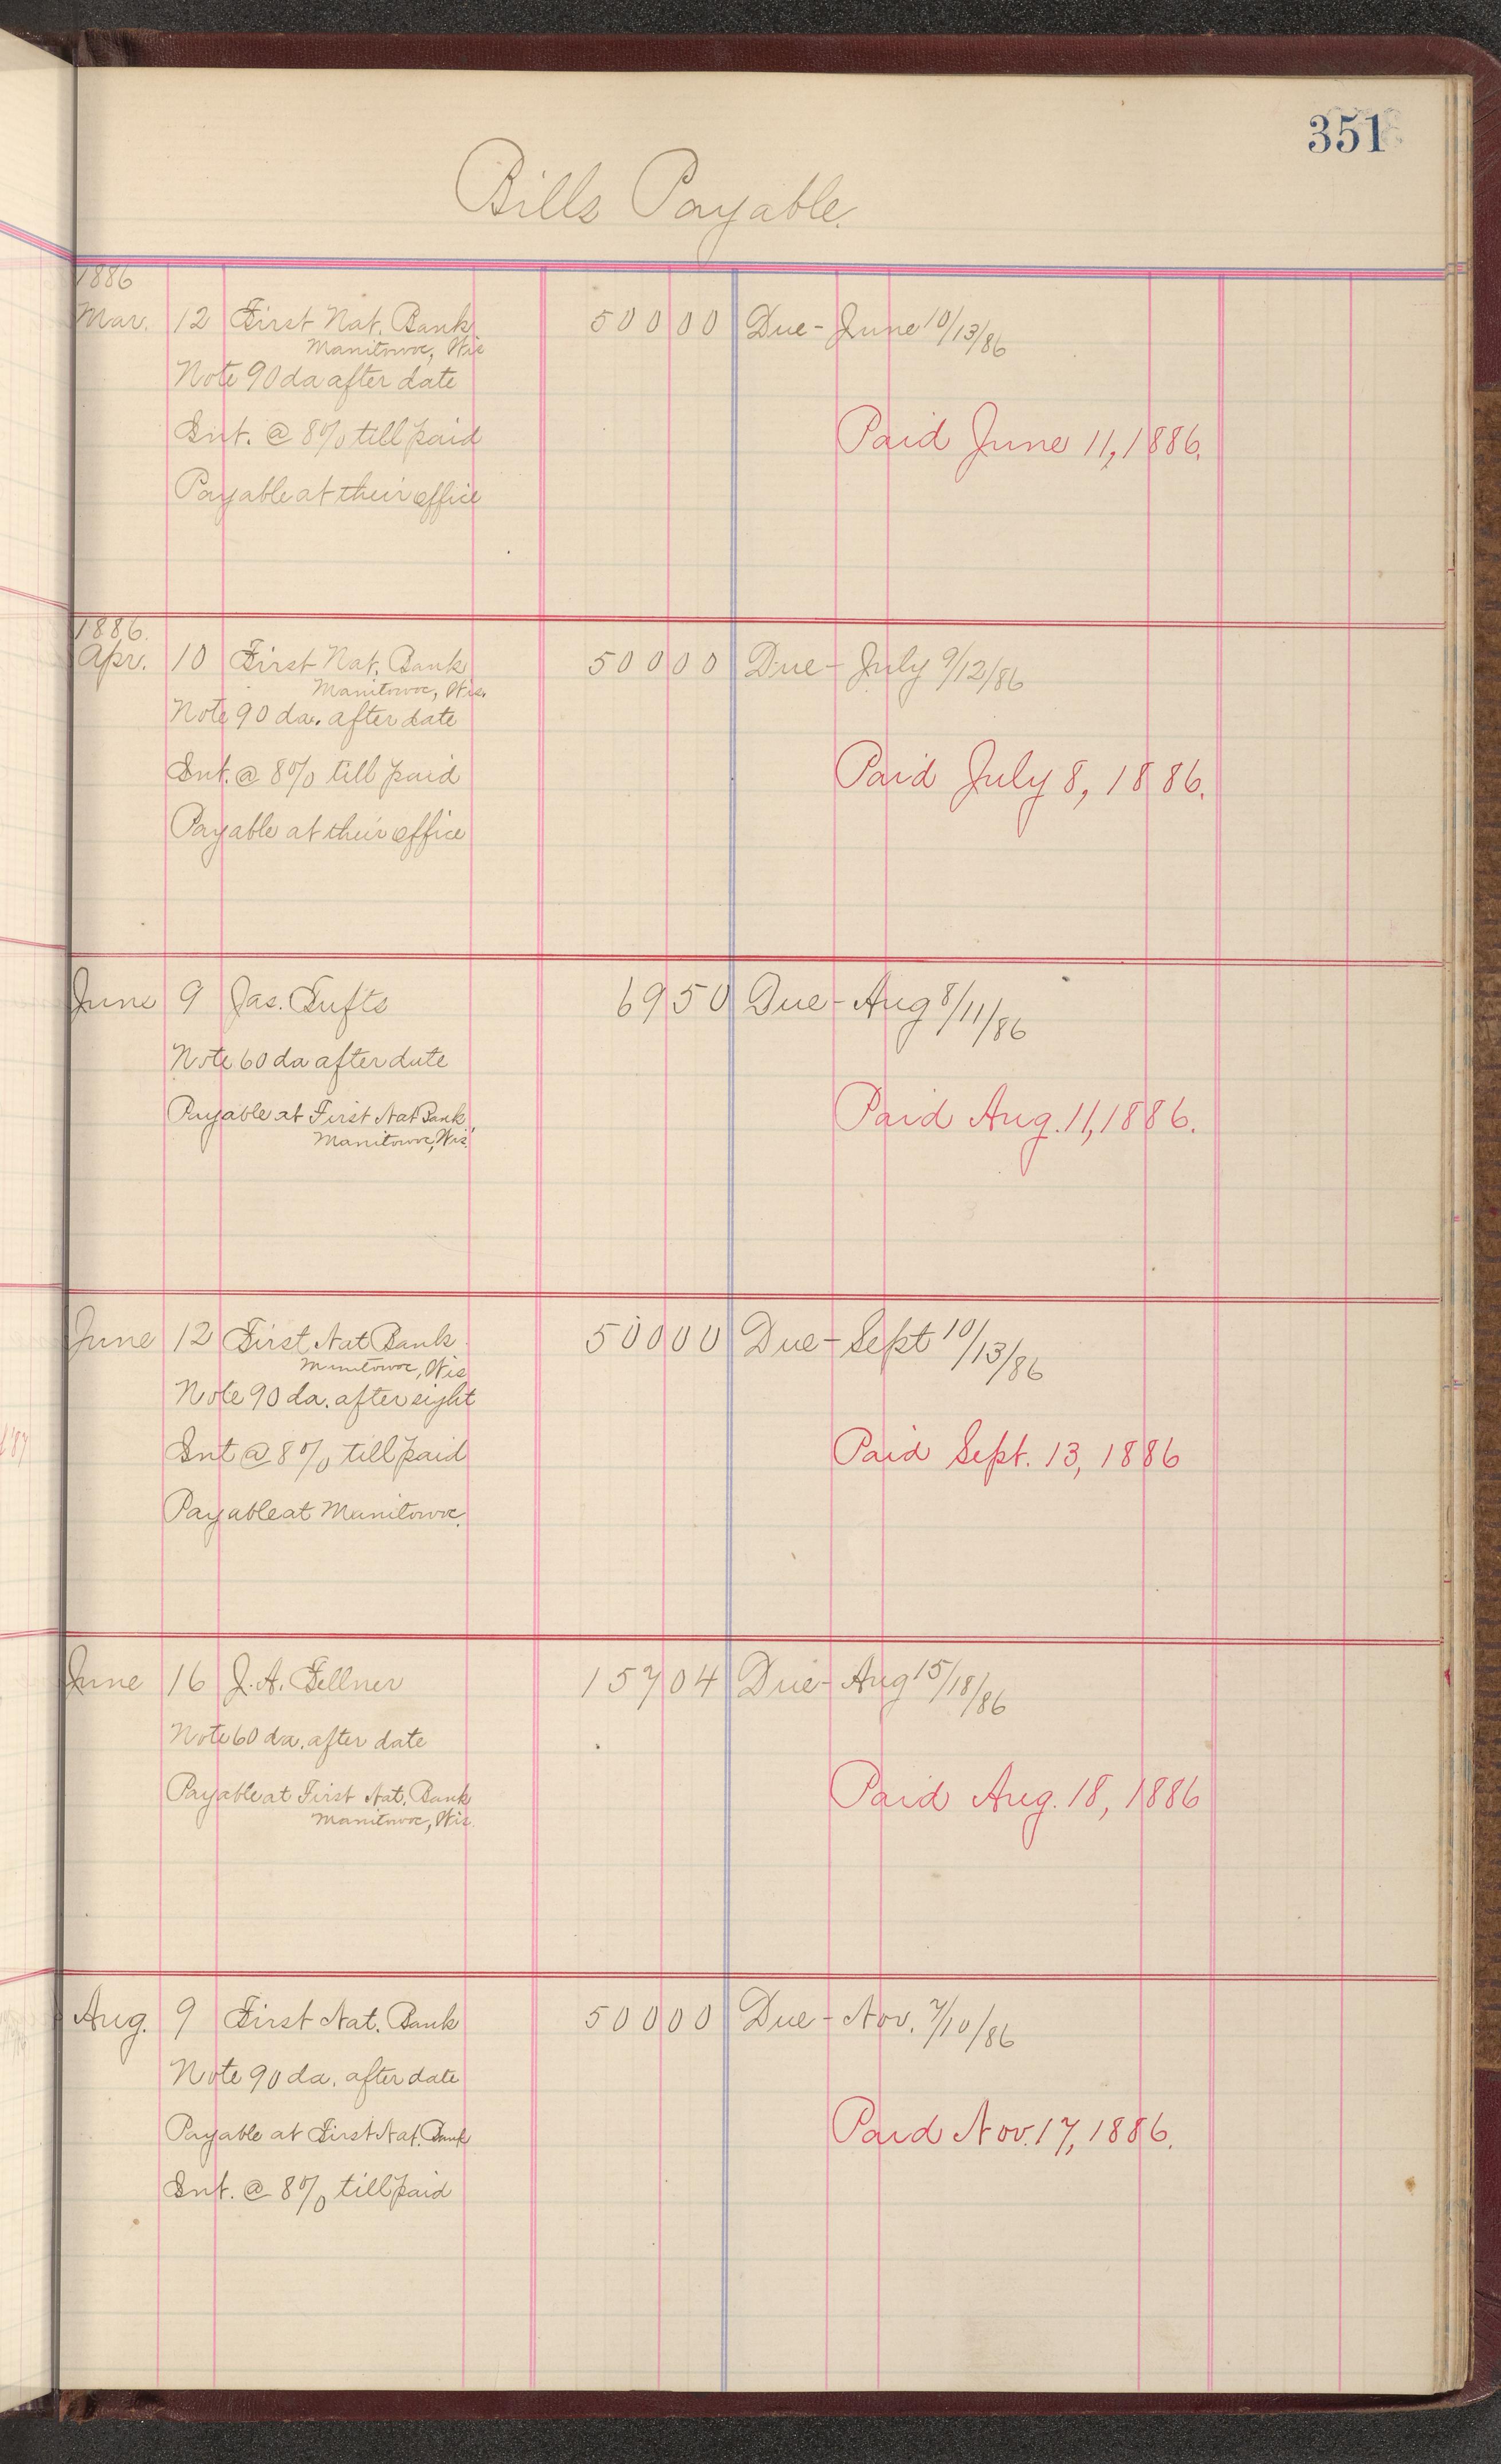 351
Bills Payable.
1886
Mar. 12 First Nat. Bank 500 00 Due - June 10/13/86
Manitowoc, Wis
Note 90 da after date
Int. @ 8% till paid
Paid June 11, 1886.
Payable at their office
1886.
Apr. 10 First Nat. Bank 500 00 Due - July 9/12/86
Manitowoc, Wis.
Note 90 da. after date
Int. @ 8% till paid
Paid July 8, 1886.
Payable at their office
June 9 Jas. Tufts 69 50 Due - Aug 8/11/86
Note 60 da after date
Payable at First Nat Bank,
Paid Aug. 11, 1886.
Manitowoc, Wis.
June 12 First Nat Bank 500 00 Due - Sept 10/13/86
Manitowoc, Wis
Note 90 da. after sight
Int @ 8% till paid
Paid Sept. 13, 1886
Payable at Manitowoc.
June 16 J. A. Fellner 157 04 Due - Aug 15/18/86
Note 60 da. after date
Payable at First Nat. Bank
Paid Aug. 18, 1886
Manitowoc, Wis.
Aug. 9 First Nat. Bank 500 00 Due - Nov. 7/10/86
Note 90 da. after date
Payable at First Nat. Bank
Paid Nov. 17, 1886.
Int. @ 8% till paid